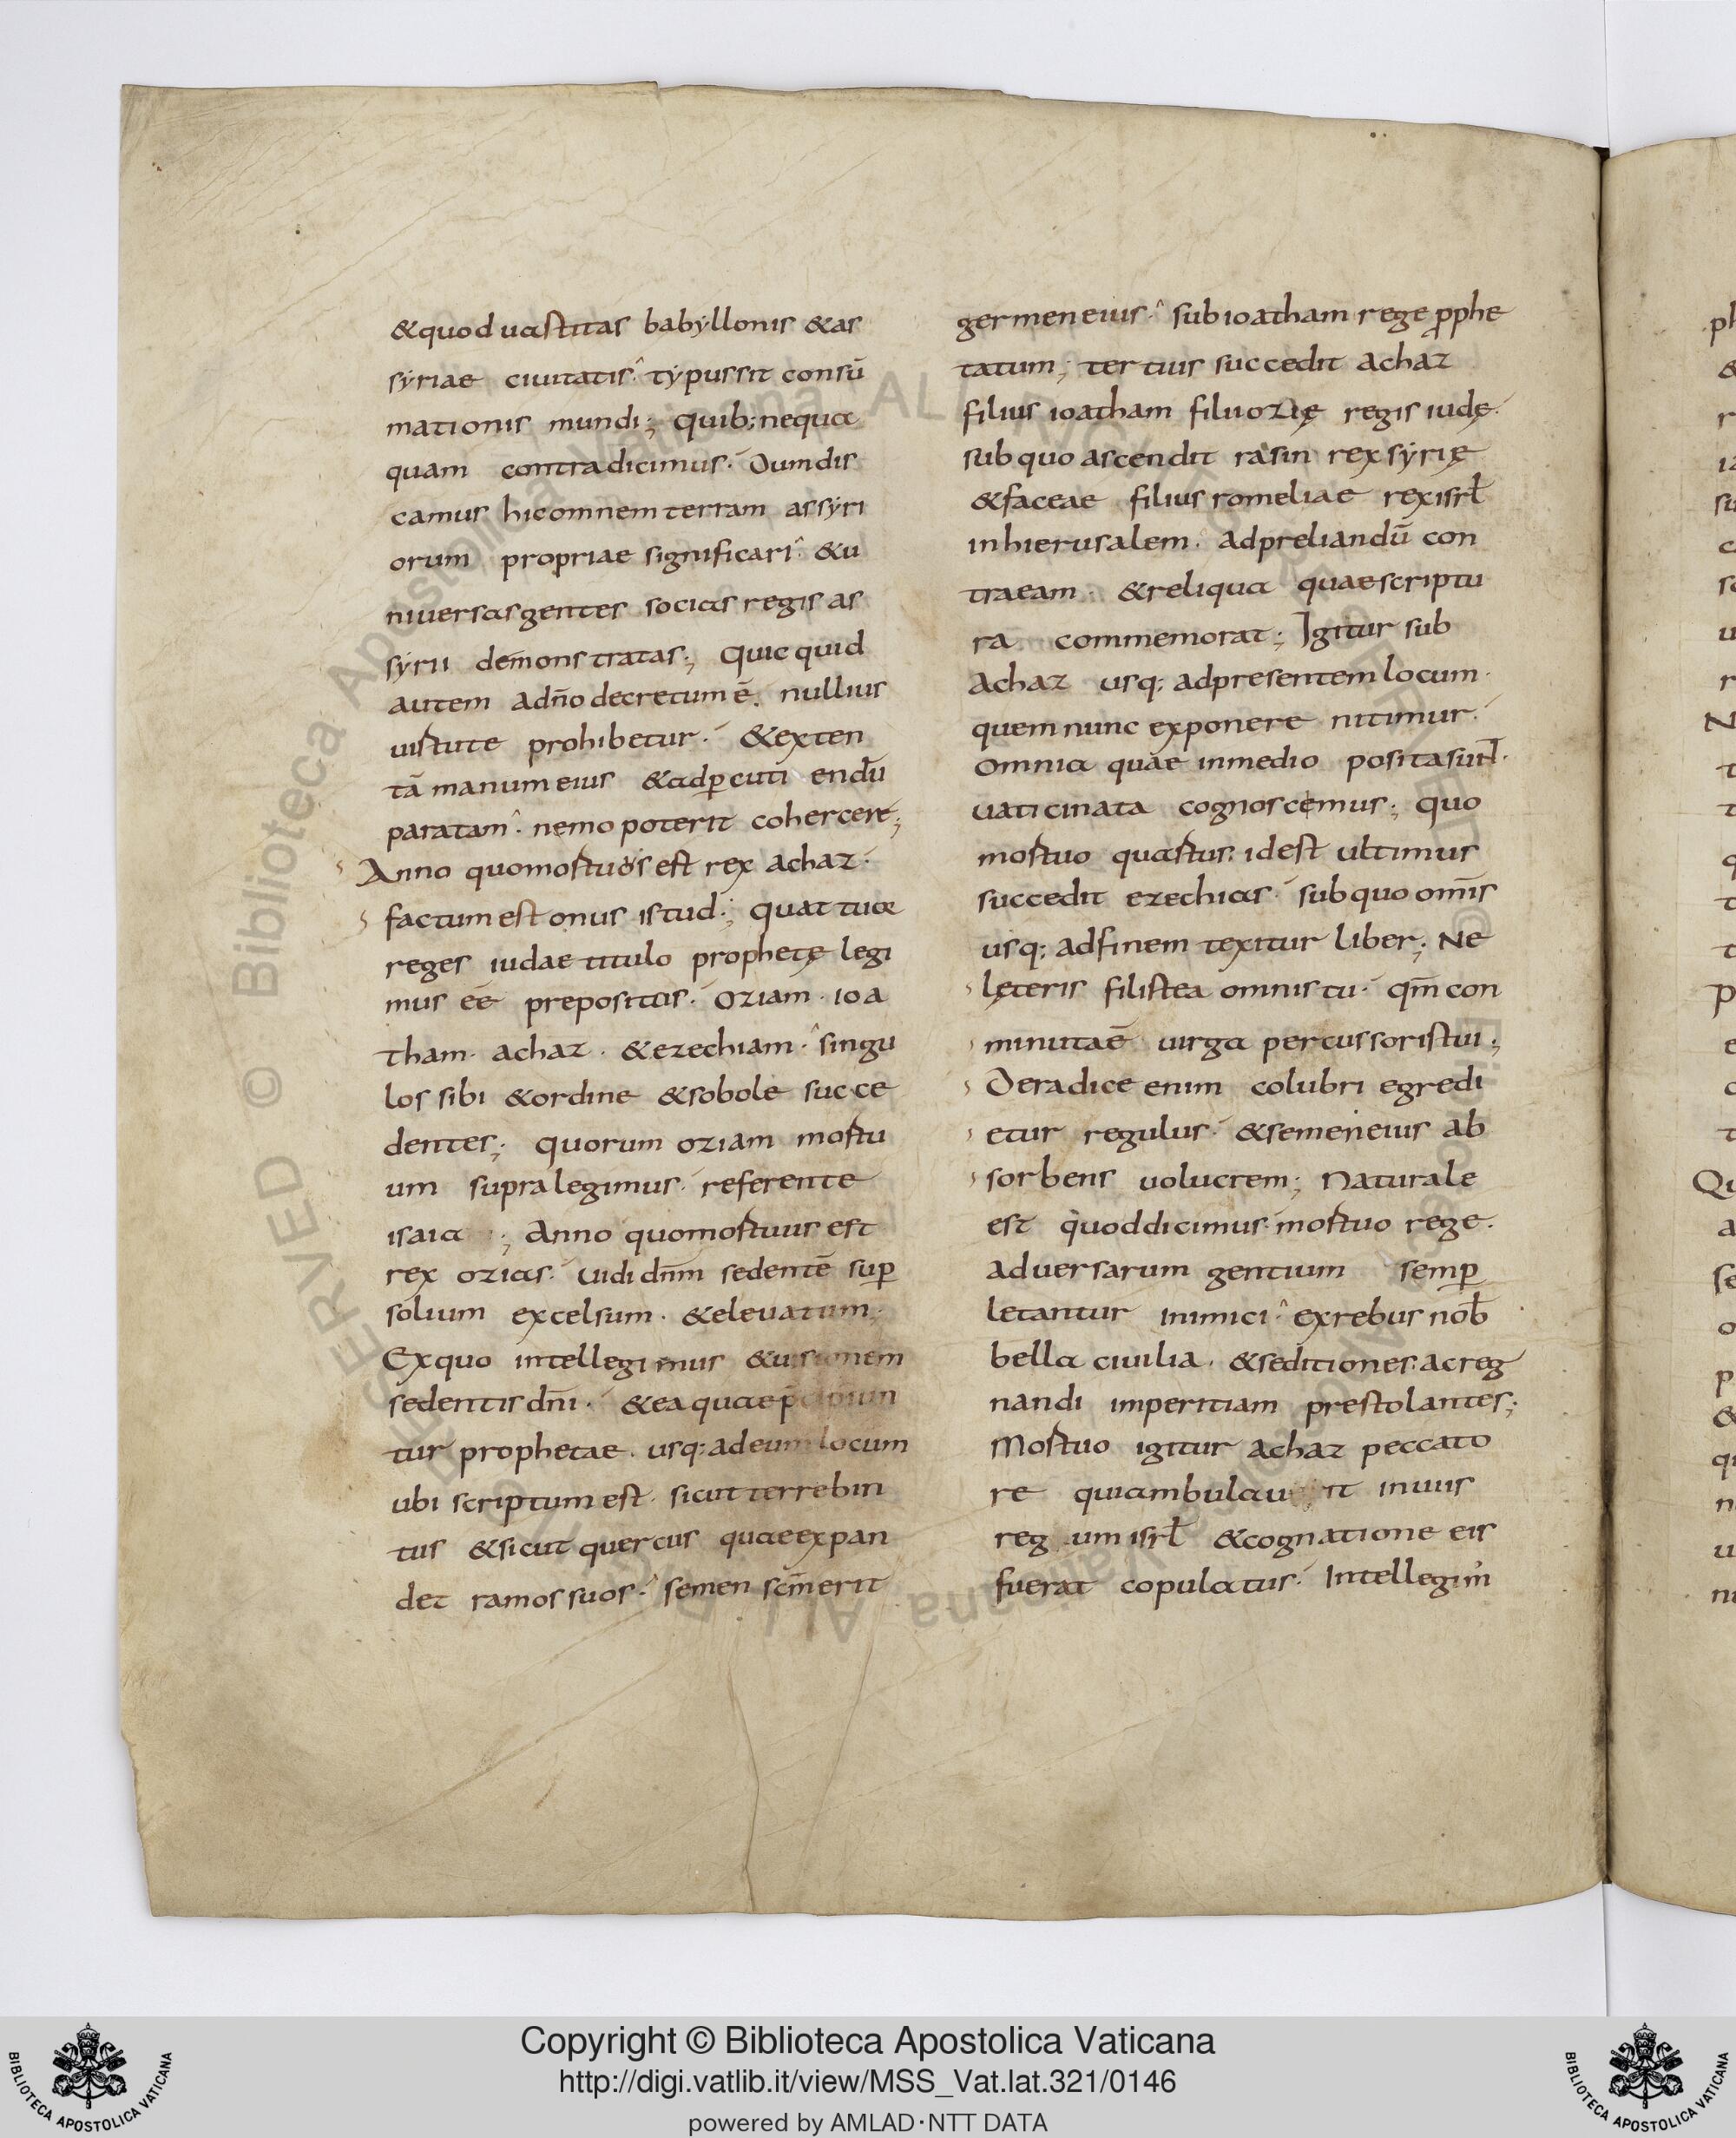 &quod uastitas babyllonis &as
syriae ciuitatis. typussit consū
mationis mundi; Quib; nequa
quam contradicimus. Dumdis
camus hicomnem terram assyri
orum propriae significari. &u
niuersasgentes socias regis as
syrii demonstratas; Quicquid
autem adño decretum ē. nullius
uirtute prohibetur. &exten
tā manum eius &adpcuti endū
paratam. nemo poterit cohercere;
Anno quomortuos est rex achaz.
factum est onus istud; Quattuor
reges iudae titulo prophetę legi
mus eē prepositas. Oziam. ioa
tham. achaz. &ezechiam. singu
los sibi &ordine &sobole succe
dentes; Quorum oziam mortu
um supra legimus. referente
isaia; Anno quomortuus est
rex ozias. Uidi dnm sedentē sup
solium excelsum. &eleuatum.
Exquo intellegimus &uisionem
sedentis dñi. &ea quae
tur prophetae. usq; adeum locum
ubi scriptum est. sicut terrebin
tus &sicut quercus quaeexpan
det ramos suos. semen scm̄ erit
germen eius. sub ioatham rege pphe
tatum; tertius succedit achaz
filius ioatham filii ozię regis iudę.
sub quo ascendit rasin rex syrię
&faceae filius romeliae rex isrł
inhierusalem. adpreliandū con
traeam. &reliqua quae scriptu
ra commemorat; Igitur sub
achaz usq; adpresentem locum.
quem nunc exponere nitimur.
omnia quae inmedio posita sunt.
uaticinata cognoscemus; quo
mortuo quartus. idest ultimus
succedit ezechias. sub quo om̄is
usq; adfinem texitur liber; Ne
lęteris filistea omnis tu. qm̄ con
minutaē uirga percussoris tui;
De radice enim colubri egredi
etur regulus. &semen eius ab
sorbens uolucrem; Naturale
est quod dicimus. mortuo rege.
aduersarum gentium semp
letantur inimici. exrebus nob
bella ciuilia. &seditiones. acreg
nandi imperitiam prestolantes;
Mortuo igitur achaz peccato
re quiambulau it inuiis
reg um isrł &cognatione eis
fuerat copulatus. Intellegim'
Copyright © Biblioteca Apostolica Vaticana
http://digi.vatlib.it/view/MSS_Vat.lat.321/0146
powered by AMLAD·NTT DATA
BIBLIOTECA APOSTOLICA VATICANA
BIBLIOTECA APOSTOLICA VATICANA